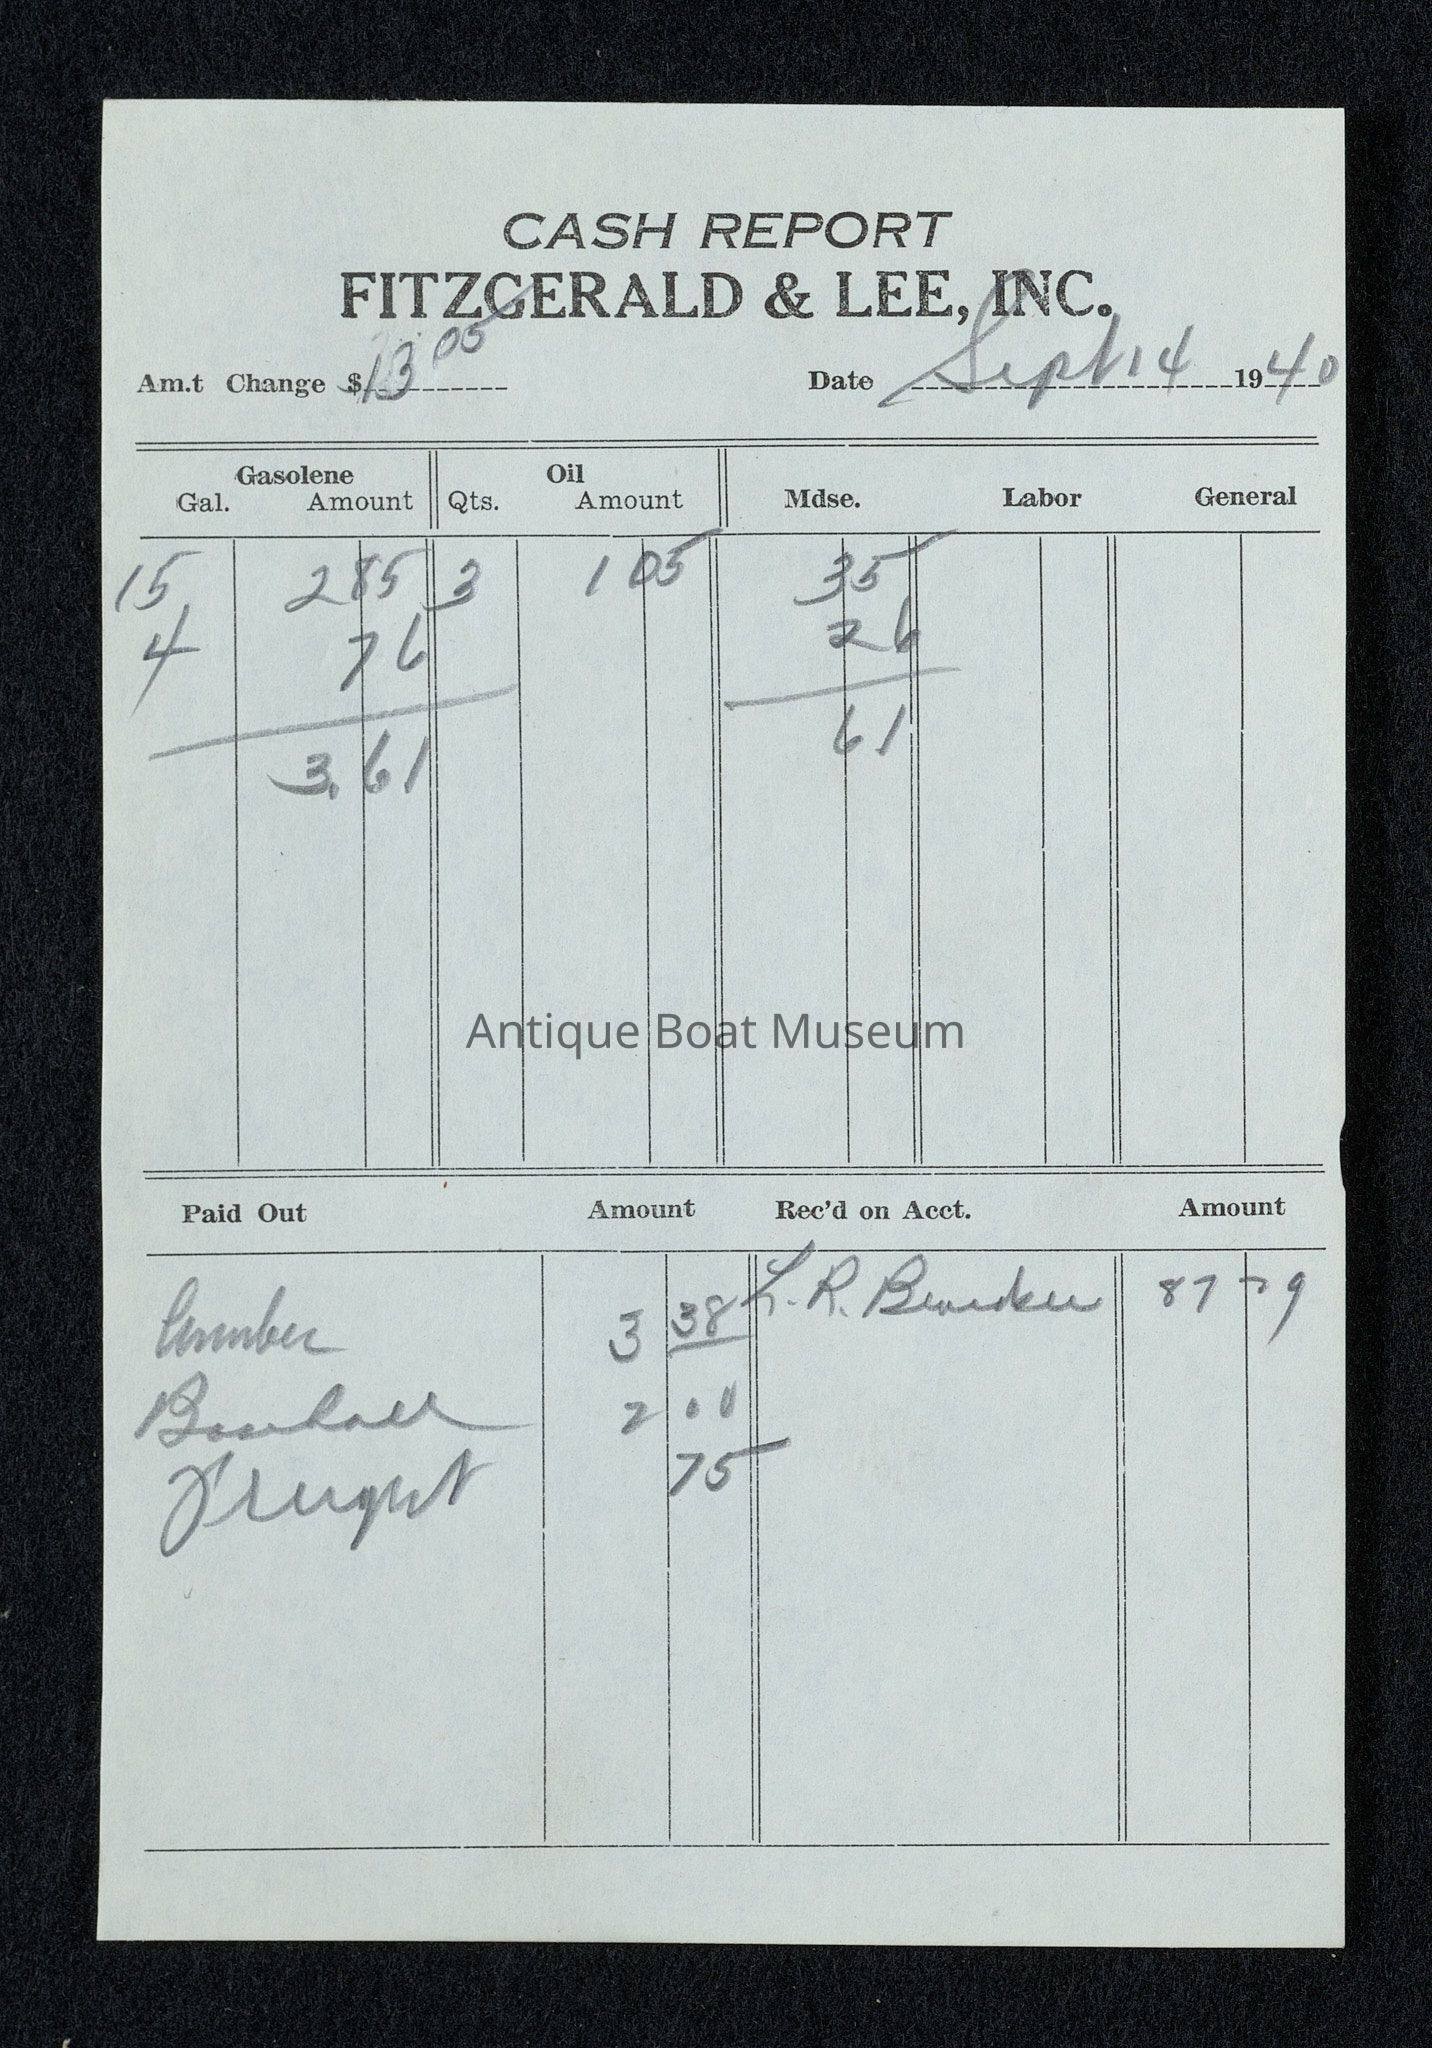 CASH REPORT
FITZGERALD & LEE, INC.
Am.t Change $ 13 05 Date Sept 14 1940
Gasolene Oil
Gal. Amount Qts. Amount Mdse. Labor General
15 2 85 3 1 05 35
4 76 26
3.61 61
Antique Boat Museum
Paid Out Amount Rec'd on Acct. Amount
3 38 L. R. 87 79
2 00
Freight 75